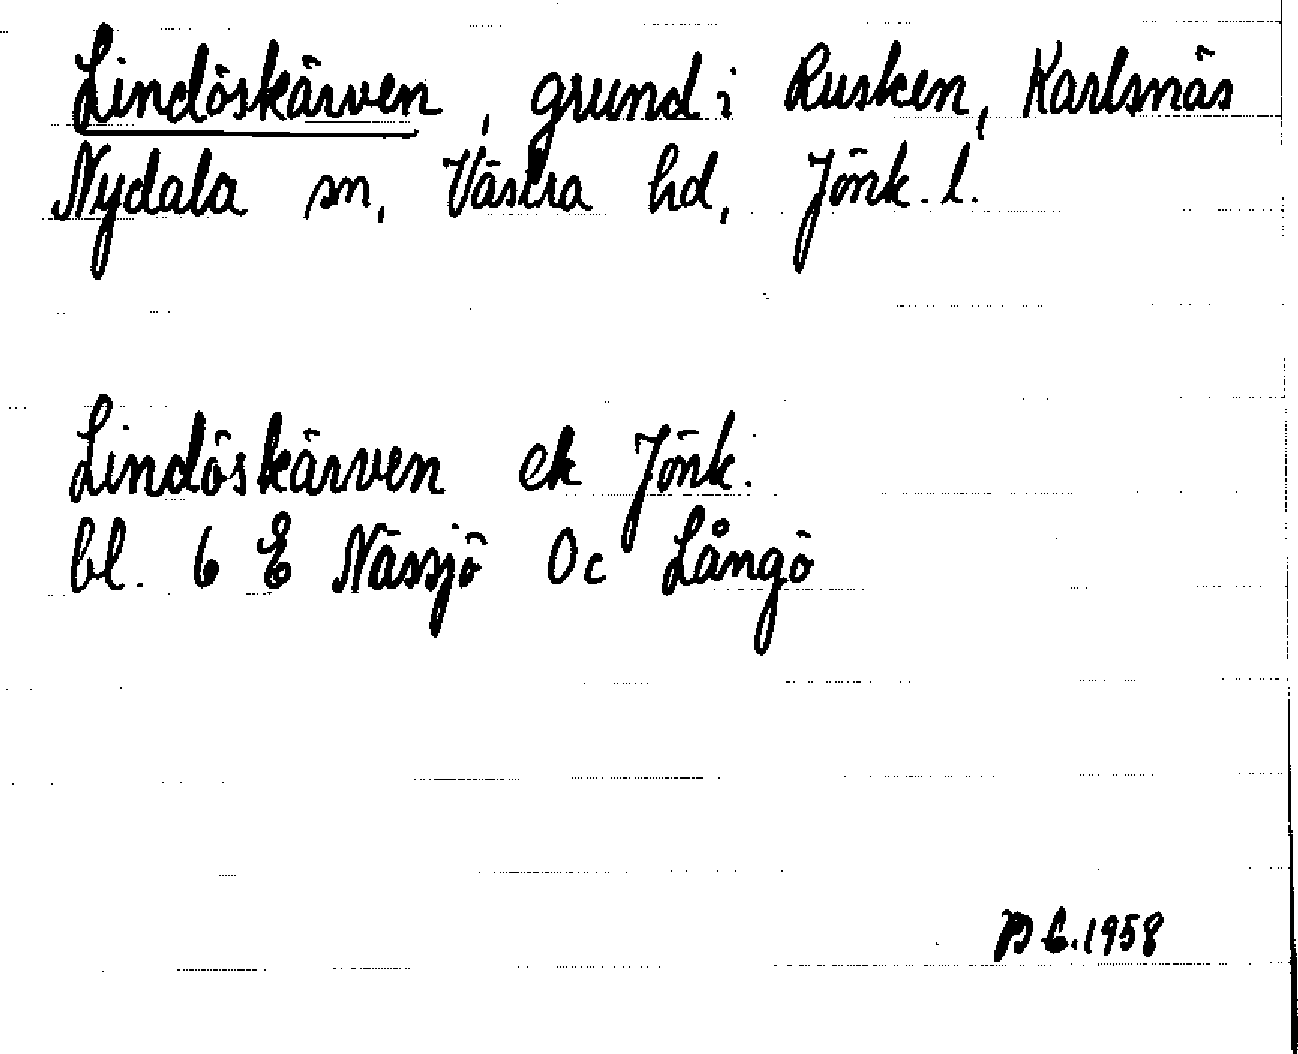 Lindöskärven, grund i Rusken, Karlsnäs
Nydala sn, Västra hd, Jönk. l.
Lindöskärven ek Jönk.
bl. 6 E Nässjö 0c Långö
1958